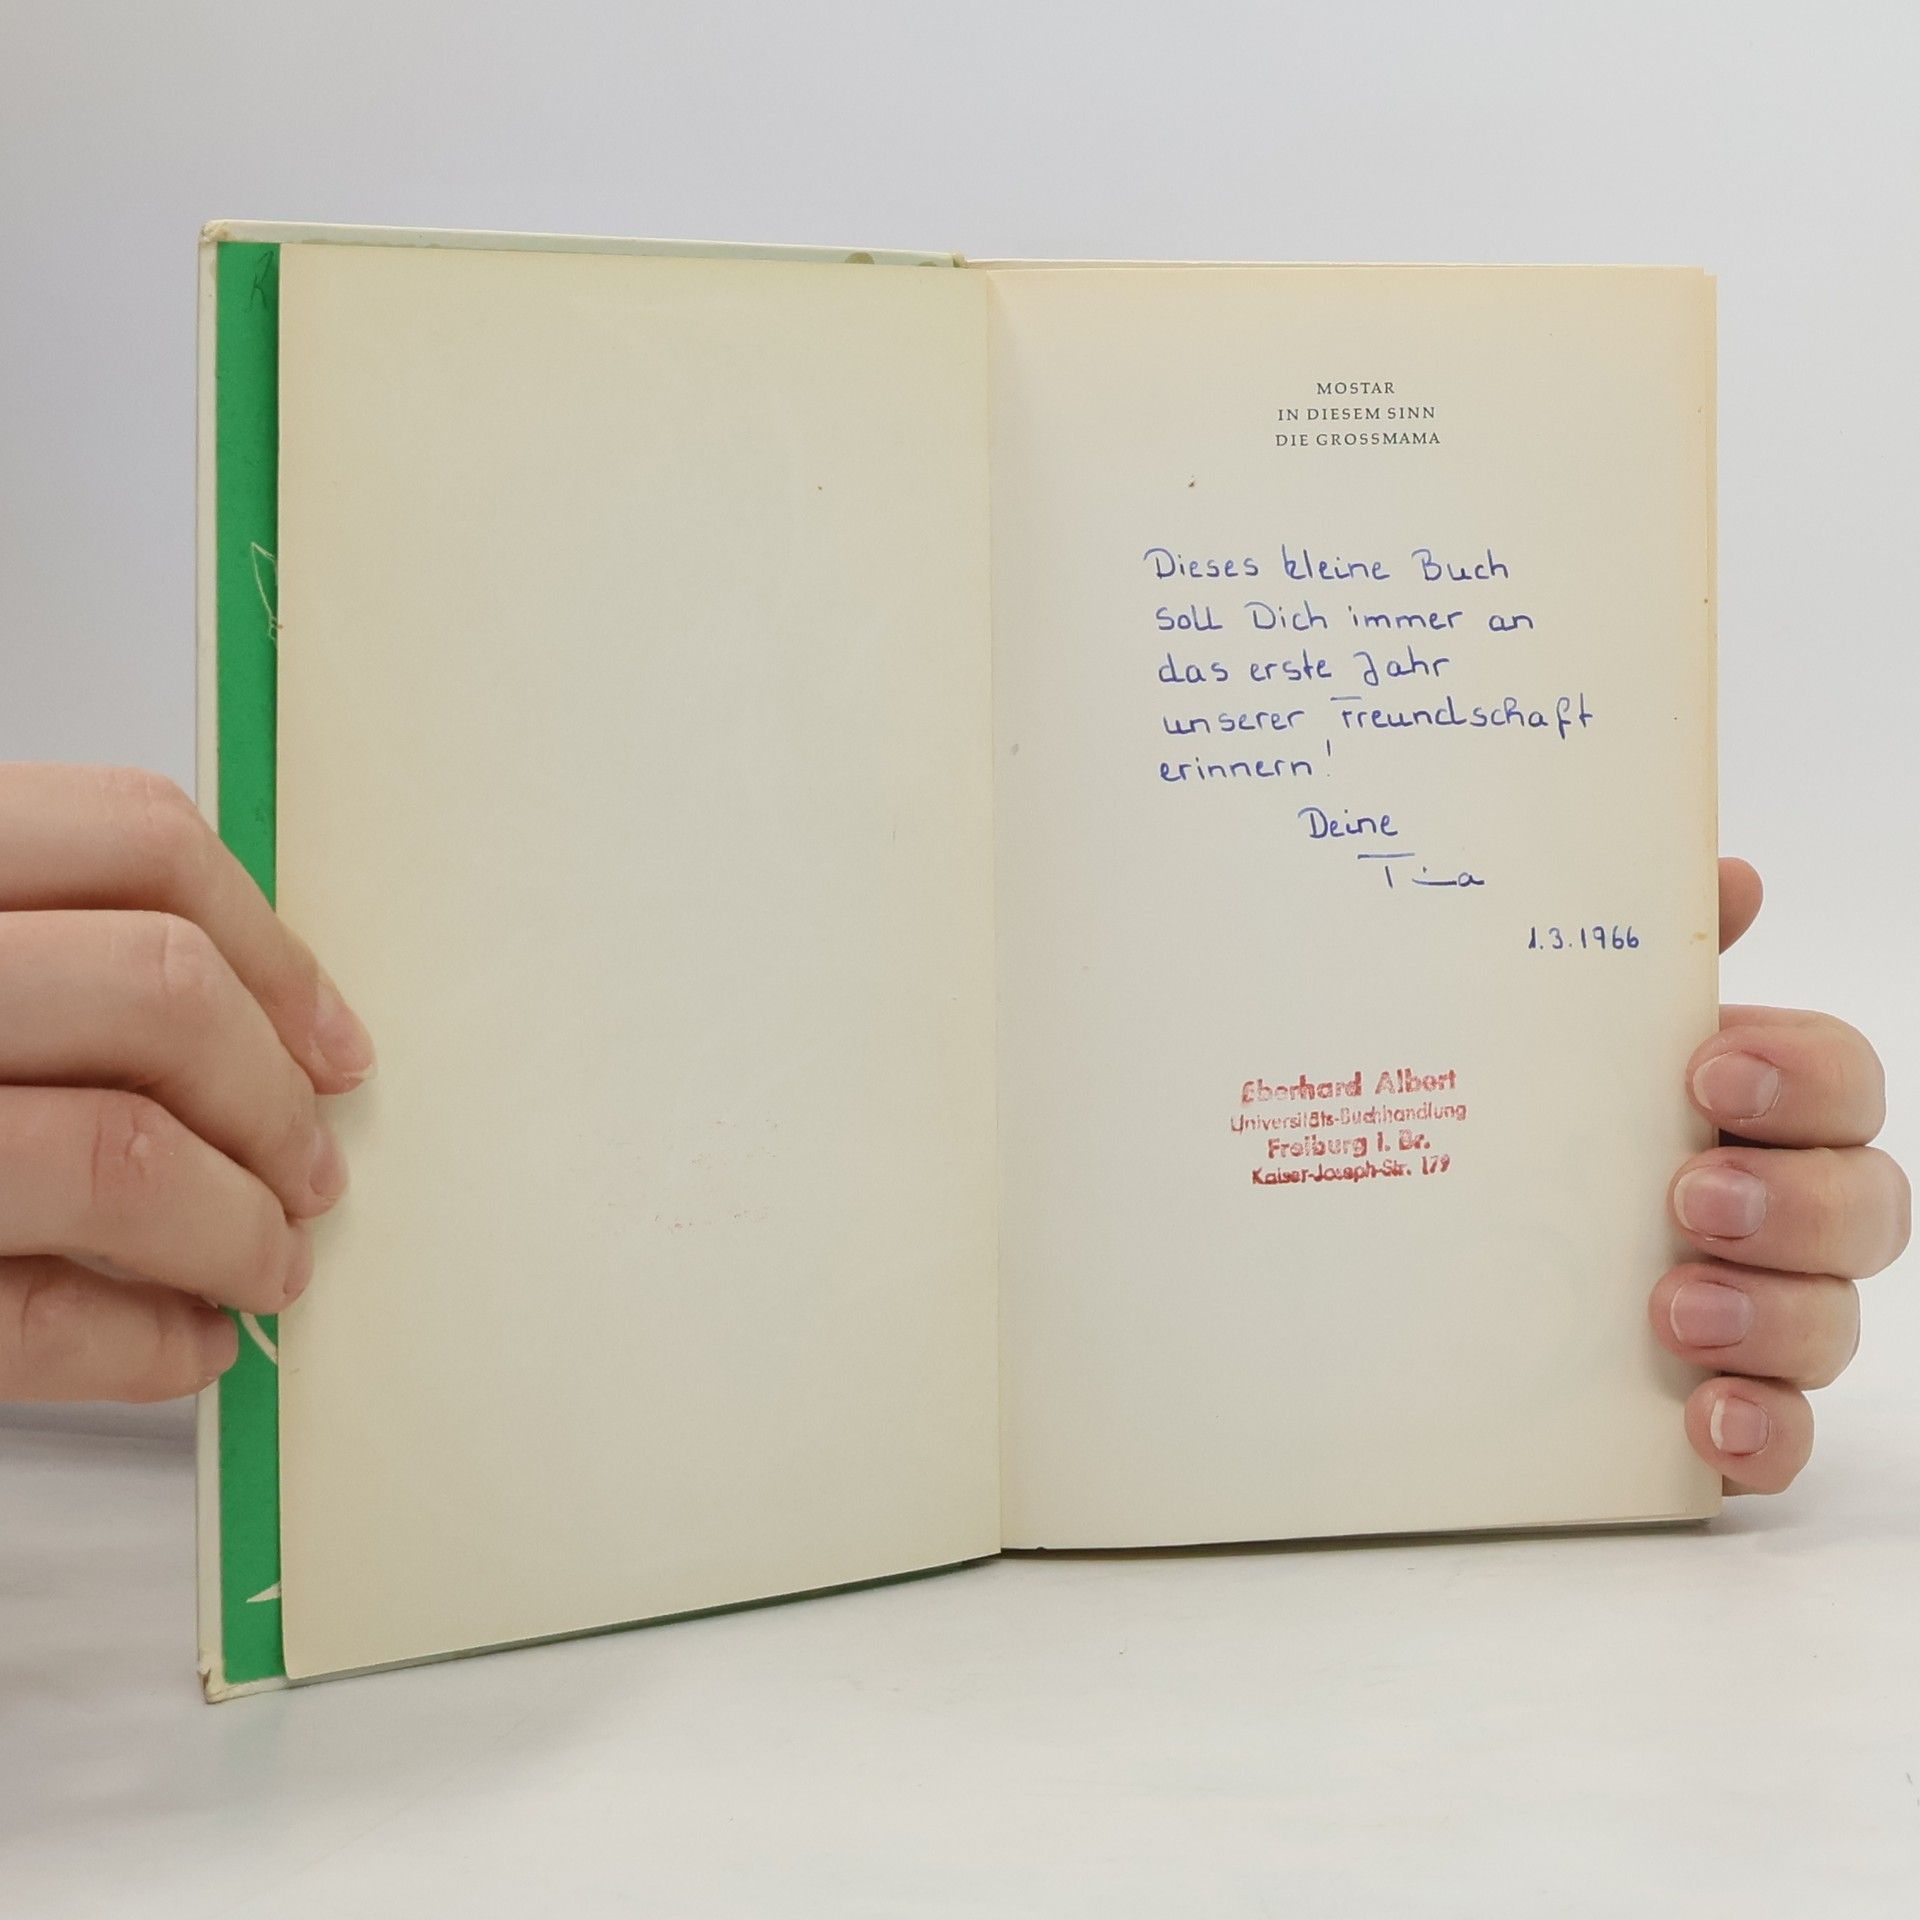 MOSTAR
IN DIESEM SINN
DIE GROSSMAMA
Dieses kleine Buch
soll Dich immer an
das erste Jahr
unserer Freundschaft
erinnern!
Deine
Tina
1.3.1966
Eberhard Albert
Universitäts-Buchhandlung
Freiburg i. Br.
Kaiser-Joseph-Str. 179